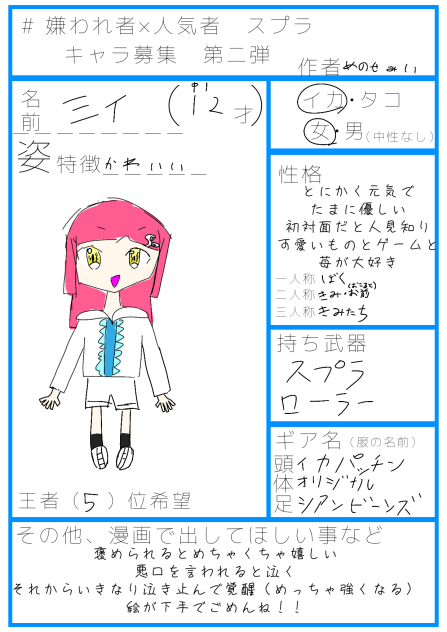 # 嫌われ者×人気者 スプラ
キャラ募集 第二弾
作者 めのせみい
名前 ミイ (中1 12才)
姿 特徴 かわいい
王者(5)位希望
イカ・タコ
女・男(中性なし)
性格
とにかく元気で
たまに優しい
初対面だと人見知り
可愛いものとゲームと
苺が大好き
一人称 ぼく
二人称 きみ・お前
三人称 きみたち
持ち武器
スプラ
ローラー
ギア名(服の名前)
頭 イカパッチン
体 オリジナル
足 シアンビーンズ
その他、漫画で出してほしい事など
褒められるとめちゃくちゃ嬉しい
悪口を言われると泣く
それからいきなり泣き止んで覚醒(めっちゃ強くなる)
絵が下手でごめんね!!